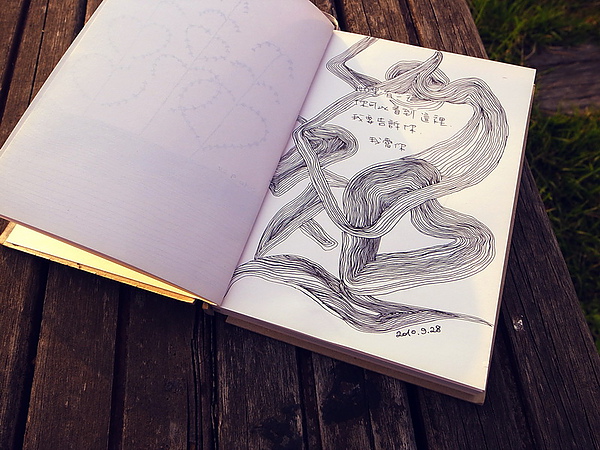 如果有一天
你可以看到 這裡
我要告訴你
我愛你
2010.9.28